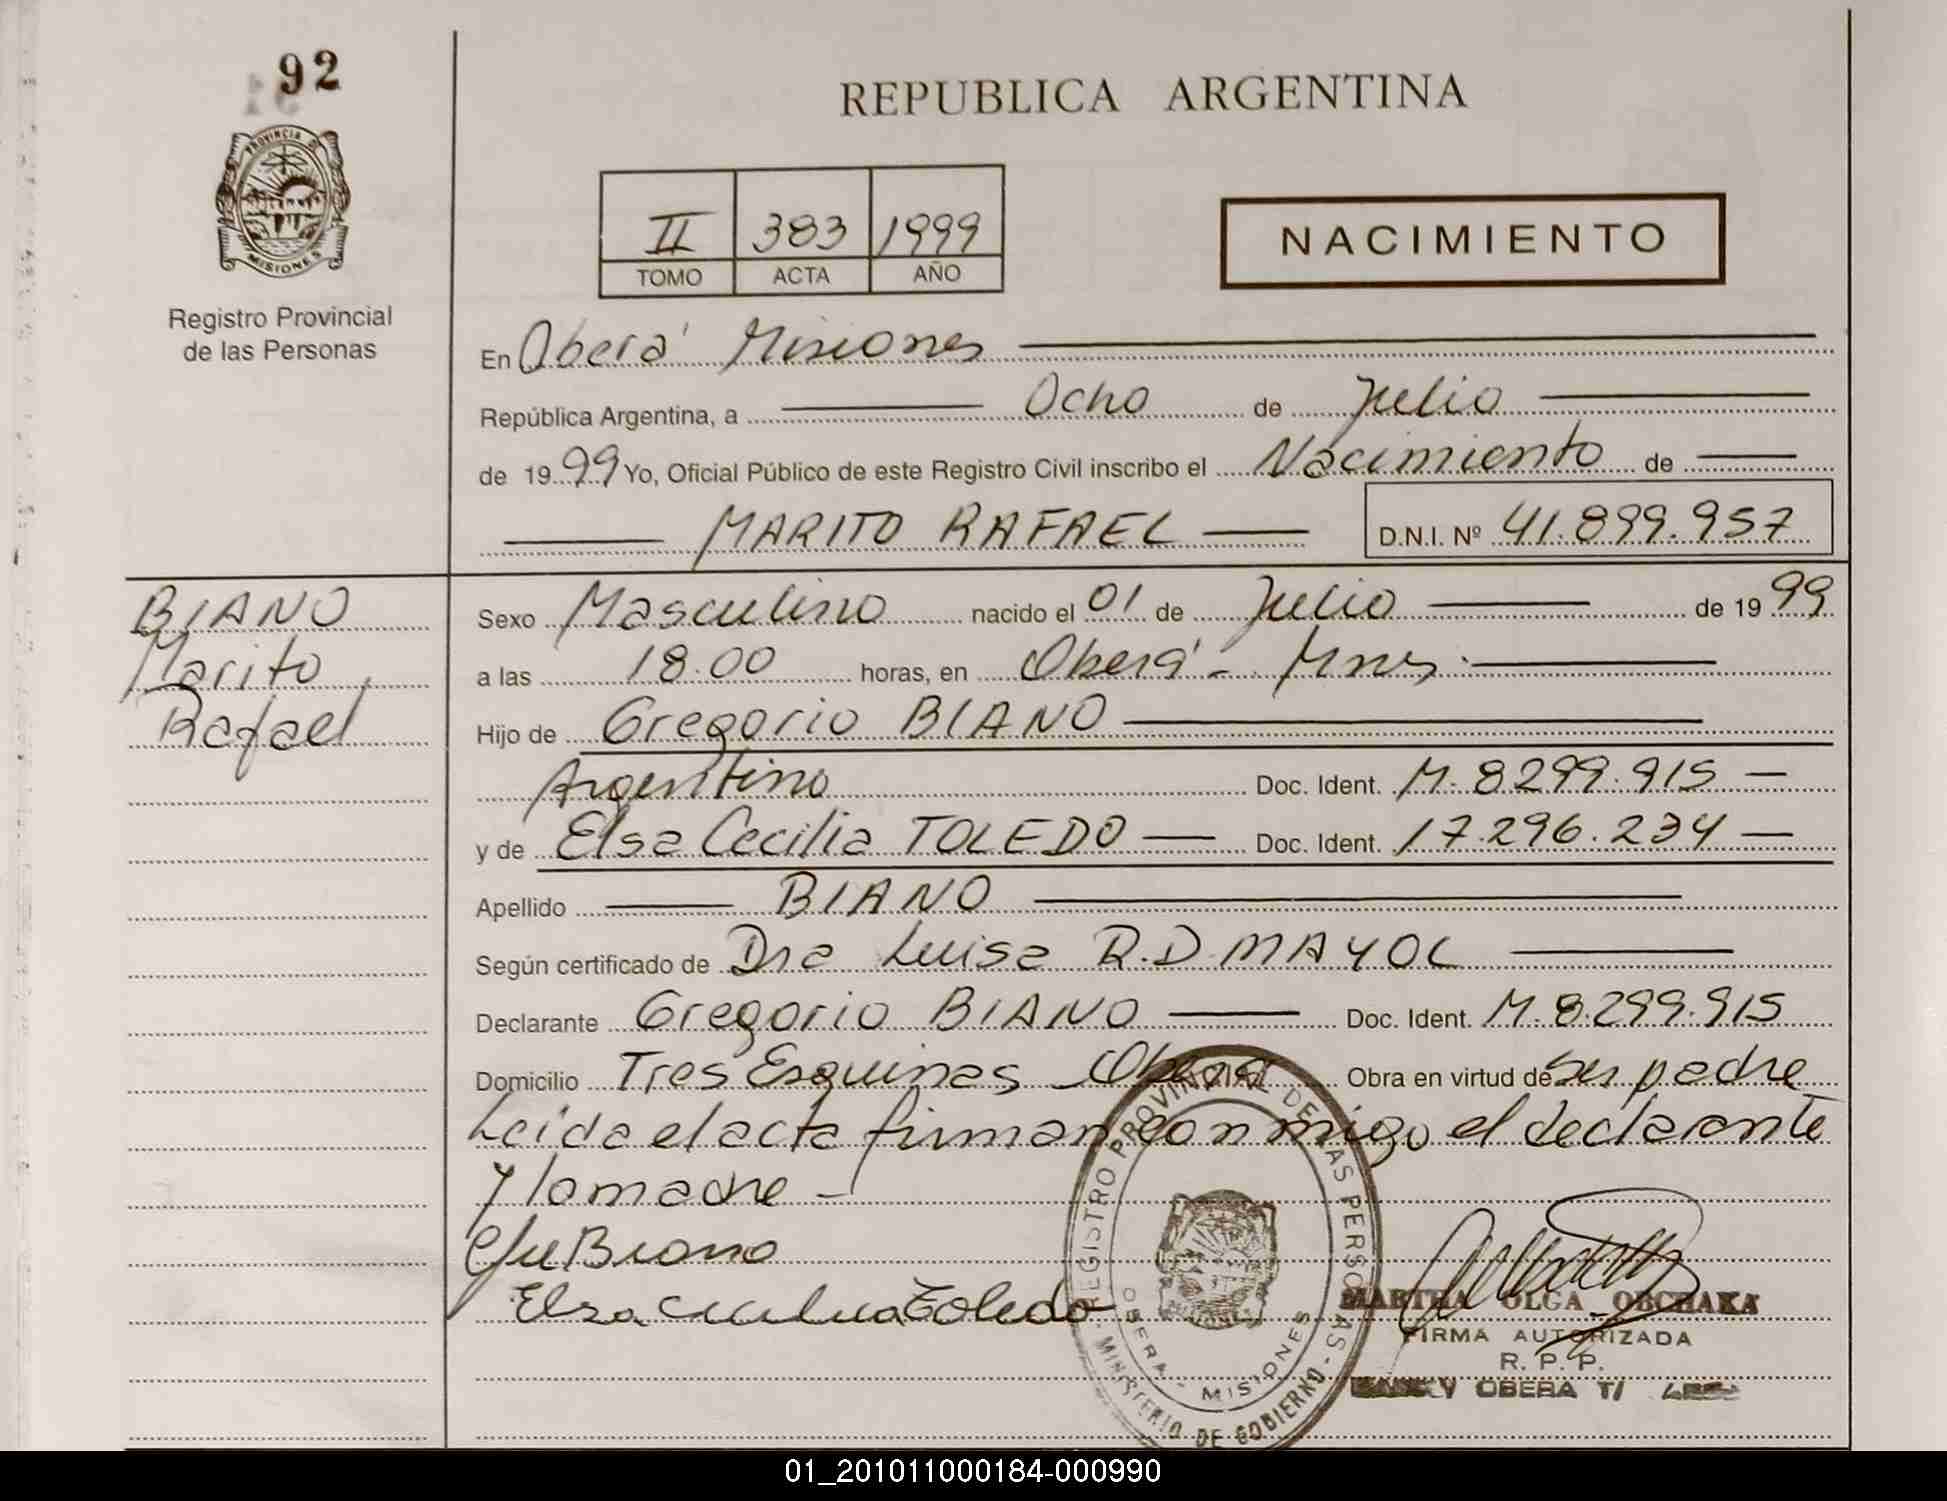 92
REPUBLICA ARGENTINA
PROVINCIA DE
MISIONES
Registro Provincial
de las Personas
II 383 1999
TOMO ACTA AÑO
NACIMIENTO
En Oberá Misiones
República Argentina, a Ocho de Julio
de 1999 Yo, Oficial Público de este Registro Civil inscribo el Nacimiento de
MARITO RAFAEL D.N.I. Nº 41.899.957
BIANO
Marito
Rafael
Sexo Masculino nacido el 01 de Julio de 1999
a las 18.00 horas, en Oberá - Mnes.
Hijo de Gregorio BIANO
Argentino Doc. Ident. M. 8299.915 —
y de Elsa Cecilia TOLEDO — Doc. Ident. 17.296.234 —
Apellido BIANO
Según certificado de Dra Luisa R.D. MAYOL
Declarante Gregorio BIANO Doc. Ident. M. 8.299.915
Domicilio Tres Esquinas Oberá Obra en virtud de Ser padre
Leida el acta firman conmigo el declarante
y la madre -
Biano
Elsa Cecilia Toledo
REGISTRO PROVINCIAL DE LAS PERSONAS
MINISTERIO DE GOBIERNO -
OBERA - MISIONES
MARTHA OLGA OBCHAKA
FIRMA AUTORIZADA
R. P. P.
OBERA T/
01_201011000184-000990